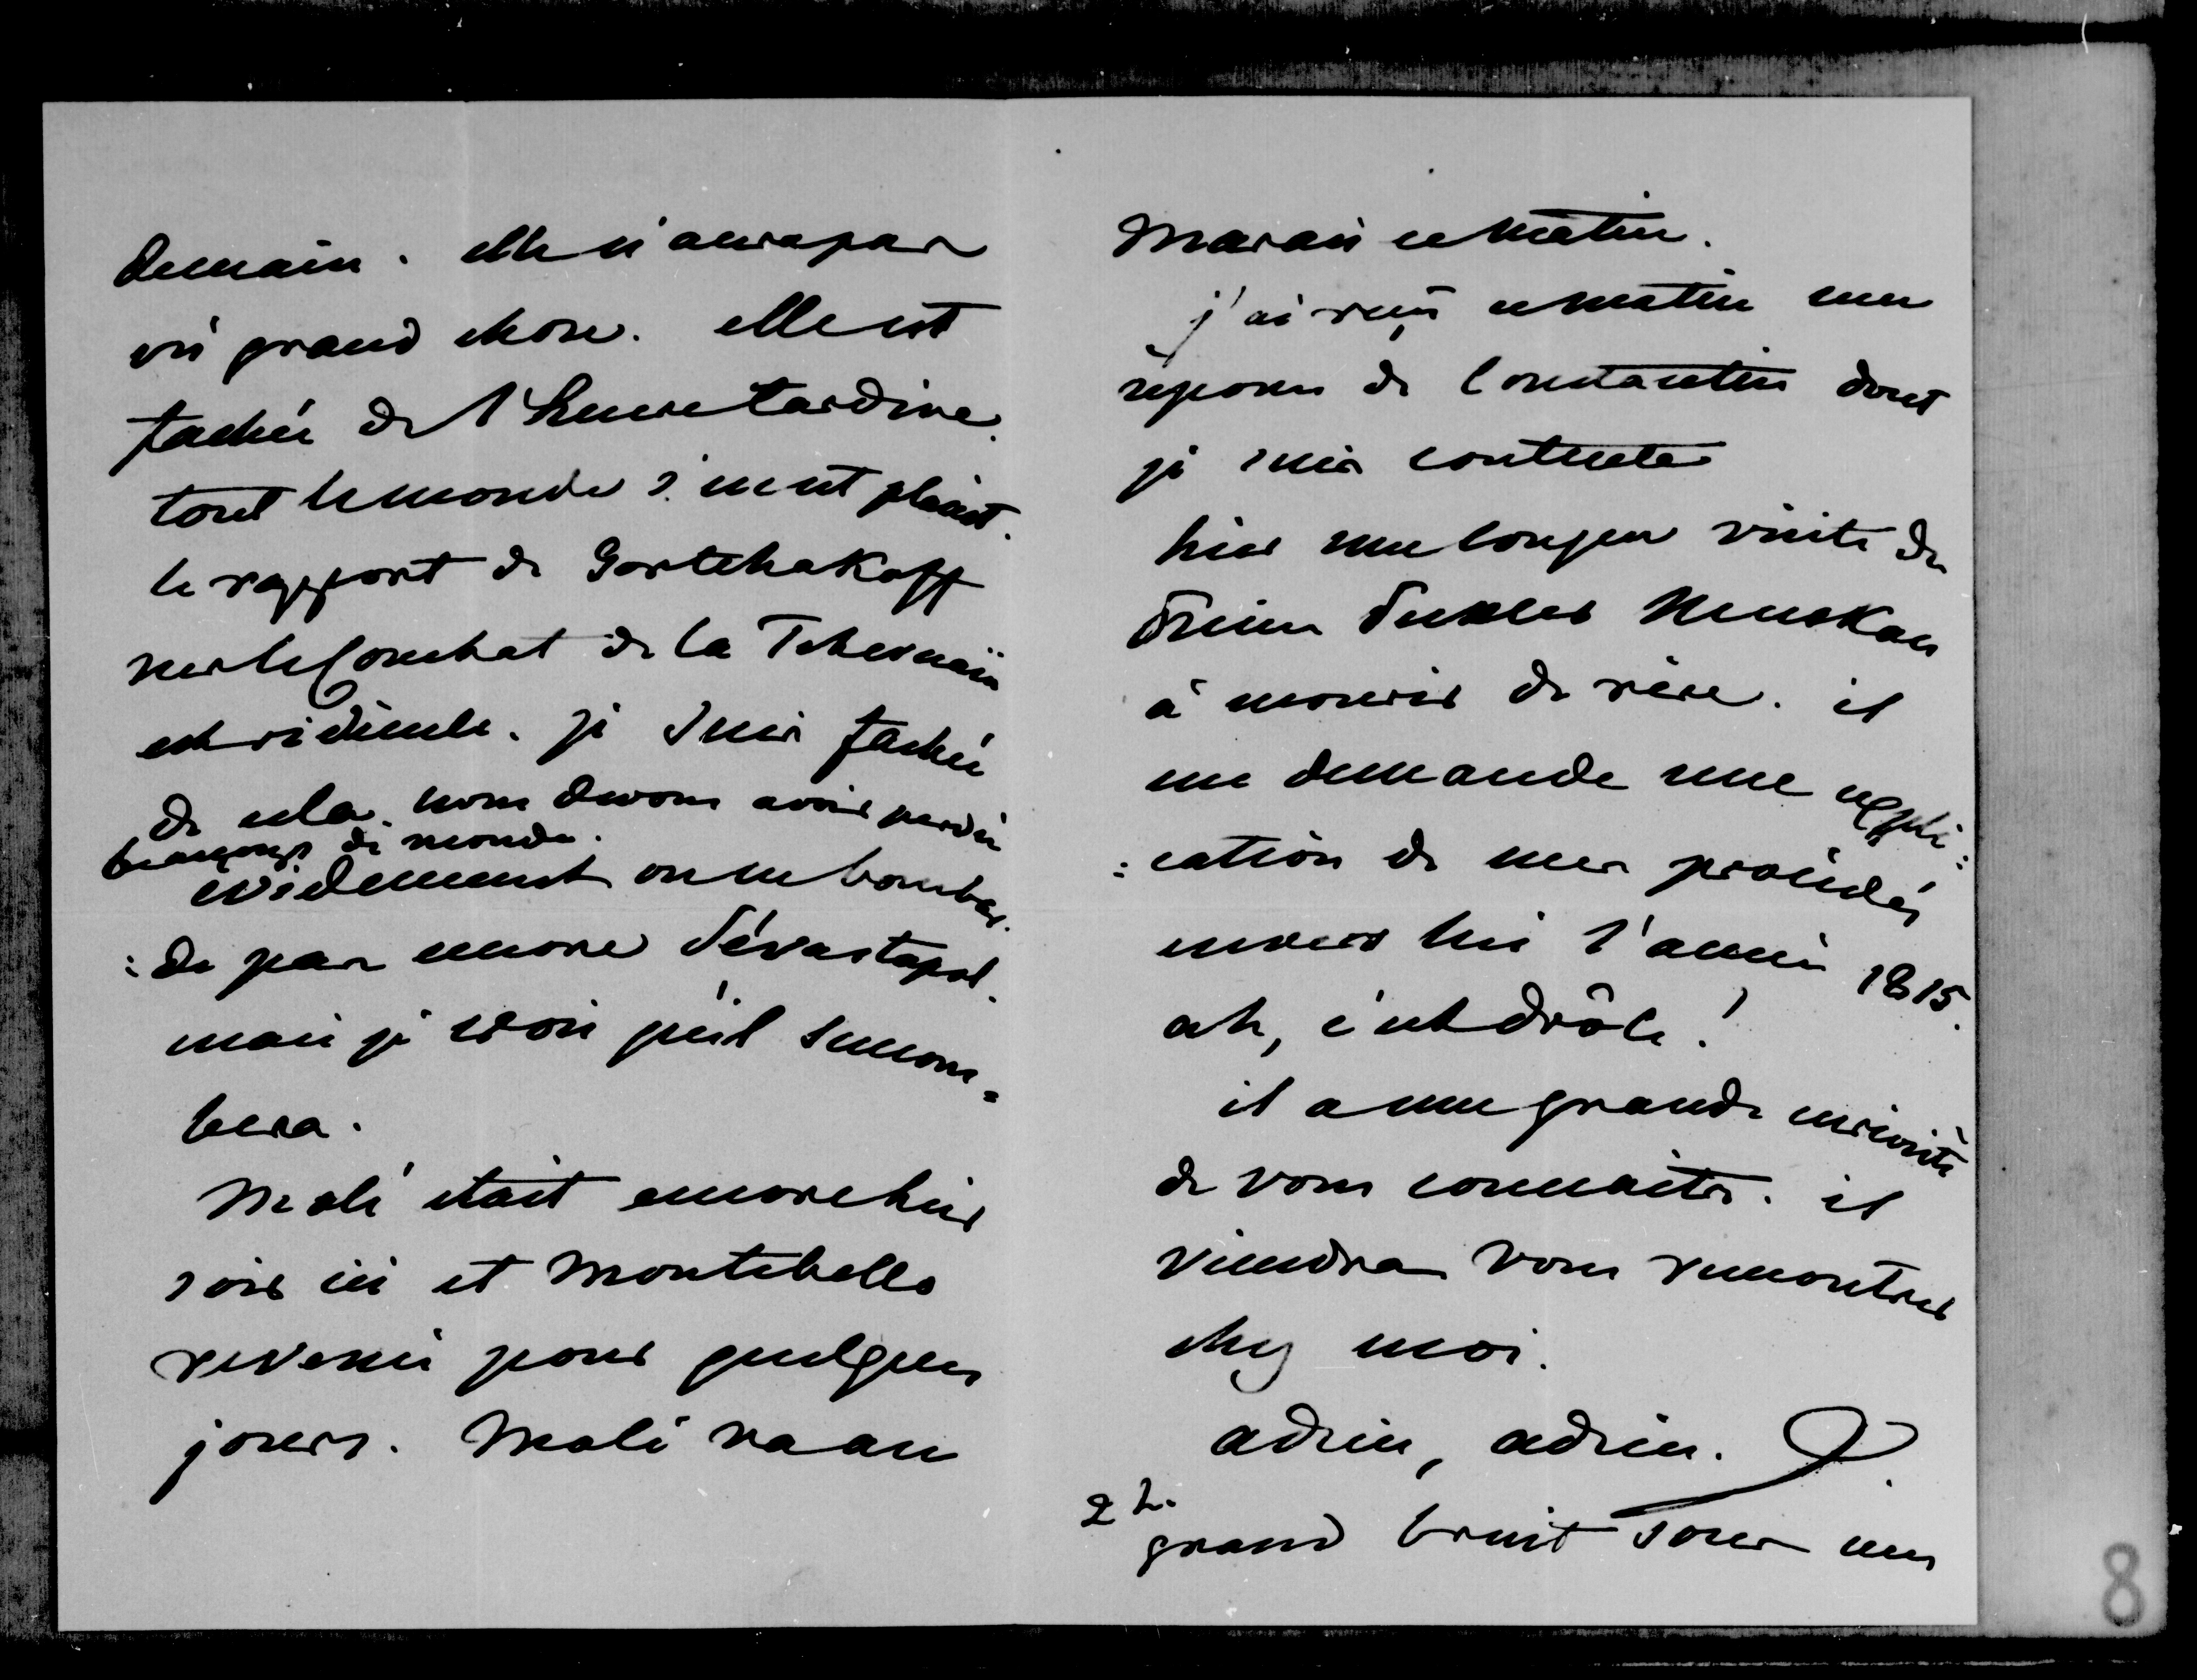 demain. elle n'aura pas
vu grand chose. elle est
fachée de l'heure tardive.
tout le monde s'en est plaint.
le rapport de Gortchakoff
sur le Combat de la Tchernaïa
est ridicule. je suis fachée
de cela. nous devons avoir perdu
beaucoup de monde.
evidemment on ne bombar:
:de pas encore Sévastopol.
mais je crois qu'il succom=
bera.
Molé était encore hier
soir ici et Montebello
revenu pour quelques
jours. Molé va au
Marais ce matin.
j'ai reçu ce matin une
réponse de Constantin dont
je suis contente
hier une longue visite du
Prince Pukler Muskau
à mourir de rire. il
me demande une expli:
:cation de mes procédés
envers lui l'année 1815.
ah, c'est drôle!
il a une grande curiosité
de vous connaitre. il
viendra vous rencontrer
chez moi.
adieu, adieu.
2 h.
grand bruit sous mes
8